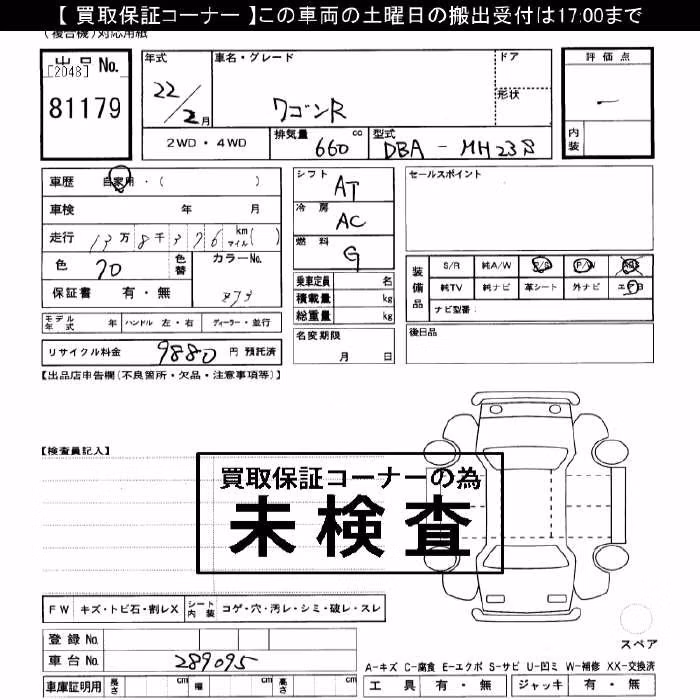 【 買取保証コーナー 】この車両の土曜日の搬出受付は17:00まで
(複合機)対応用紙
出品 No.
[2048]
81179
年式
22/2月
車名・グレード
ワゴンR
ドア
形状
評価点
ー
内装
2WD・4WD
排気量 660 cc
型式 DBA - MH23S
車歴 自家用・( )
車検 年 月
走行 13万8千376 km マイル( )
色 クロ 色替
カラーNo. Z73
保証書 有・無
モデル年式 年 ハンドル 左・右 ディーラー・並行
リサイクル料金 9880 円 預託済
シフト AT
冷房 AC
燃料 G
乗車定員 名
積載量 kg
総重量 kg
名変期限
月 日
セールスポイント
装備品
S/R 純A/W P/S P/W ABS
純TV 純ナビ 革シート 外ナビ エアB
ナビ型番:
後日品
【出品店申告欄(不良箇所・欠品・注意事項等)】
【検査員記入】
買取保証コーナーの為
未検査
FW キズ・トビ石・割レX シート内装 コゲ・穴・汚レ・シミ・破レ・スレ
登録 No.
車台 No. 289095
車庫証明用 長さ cm 幅 cm 高さ cm
スペア
A-キズ C-腐食 E-エクボ S-サビ U-凹ミ W-補修 XX-交換済
工具 有・無 ジャッキ 有・無